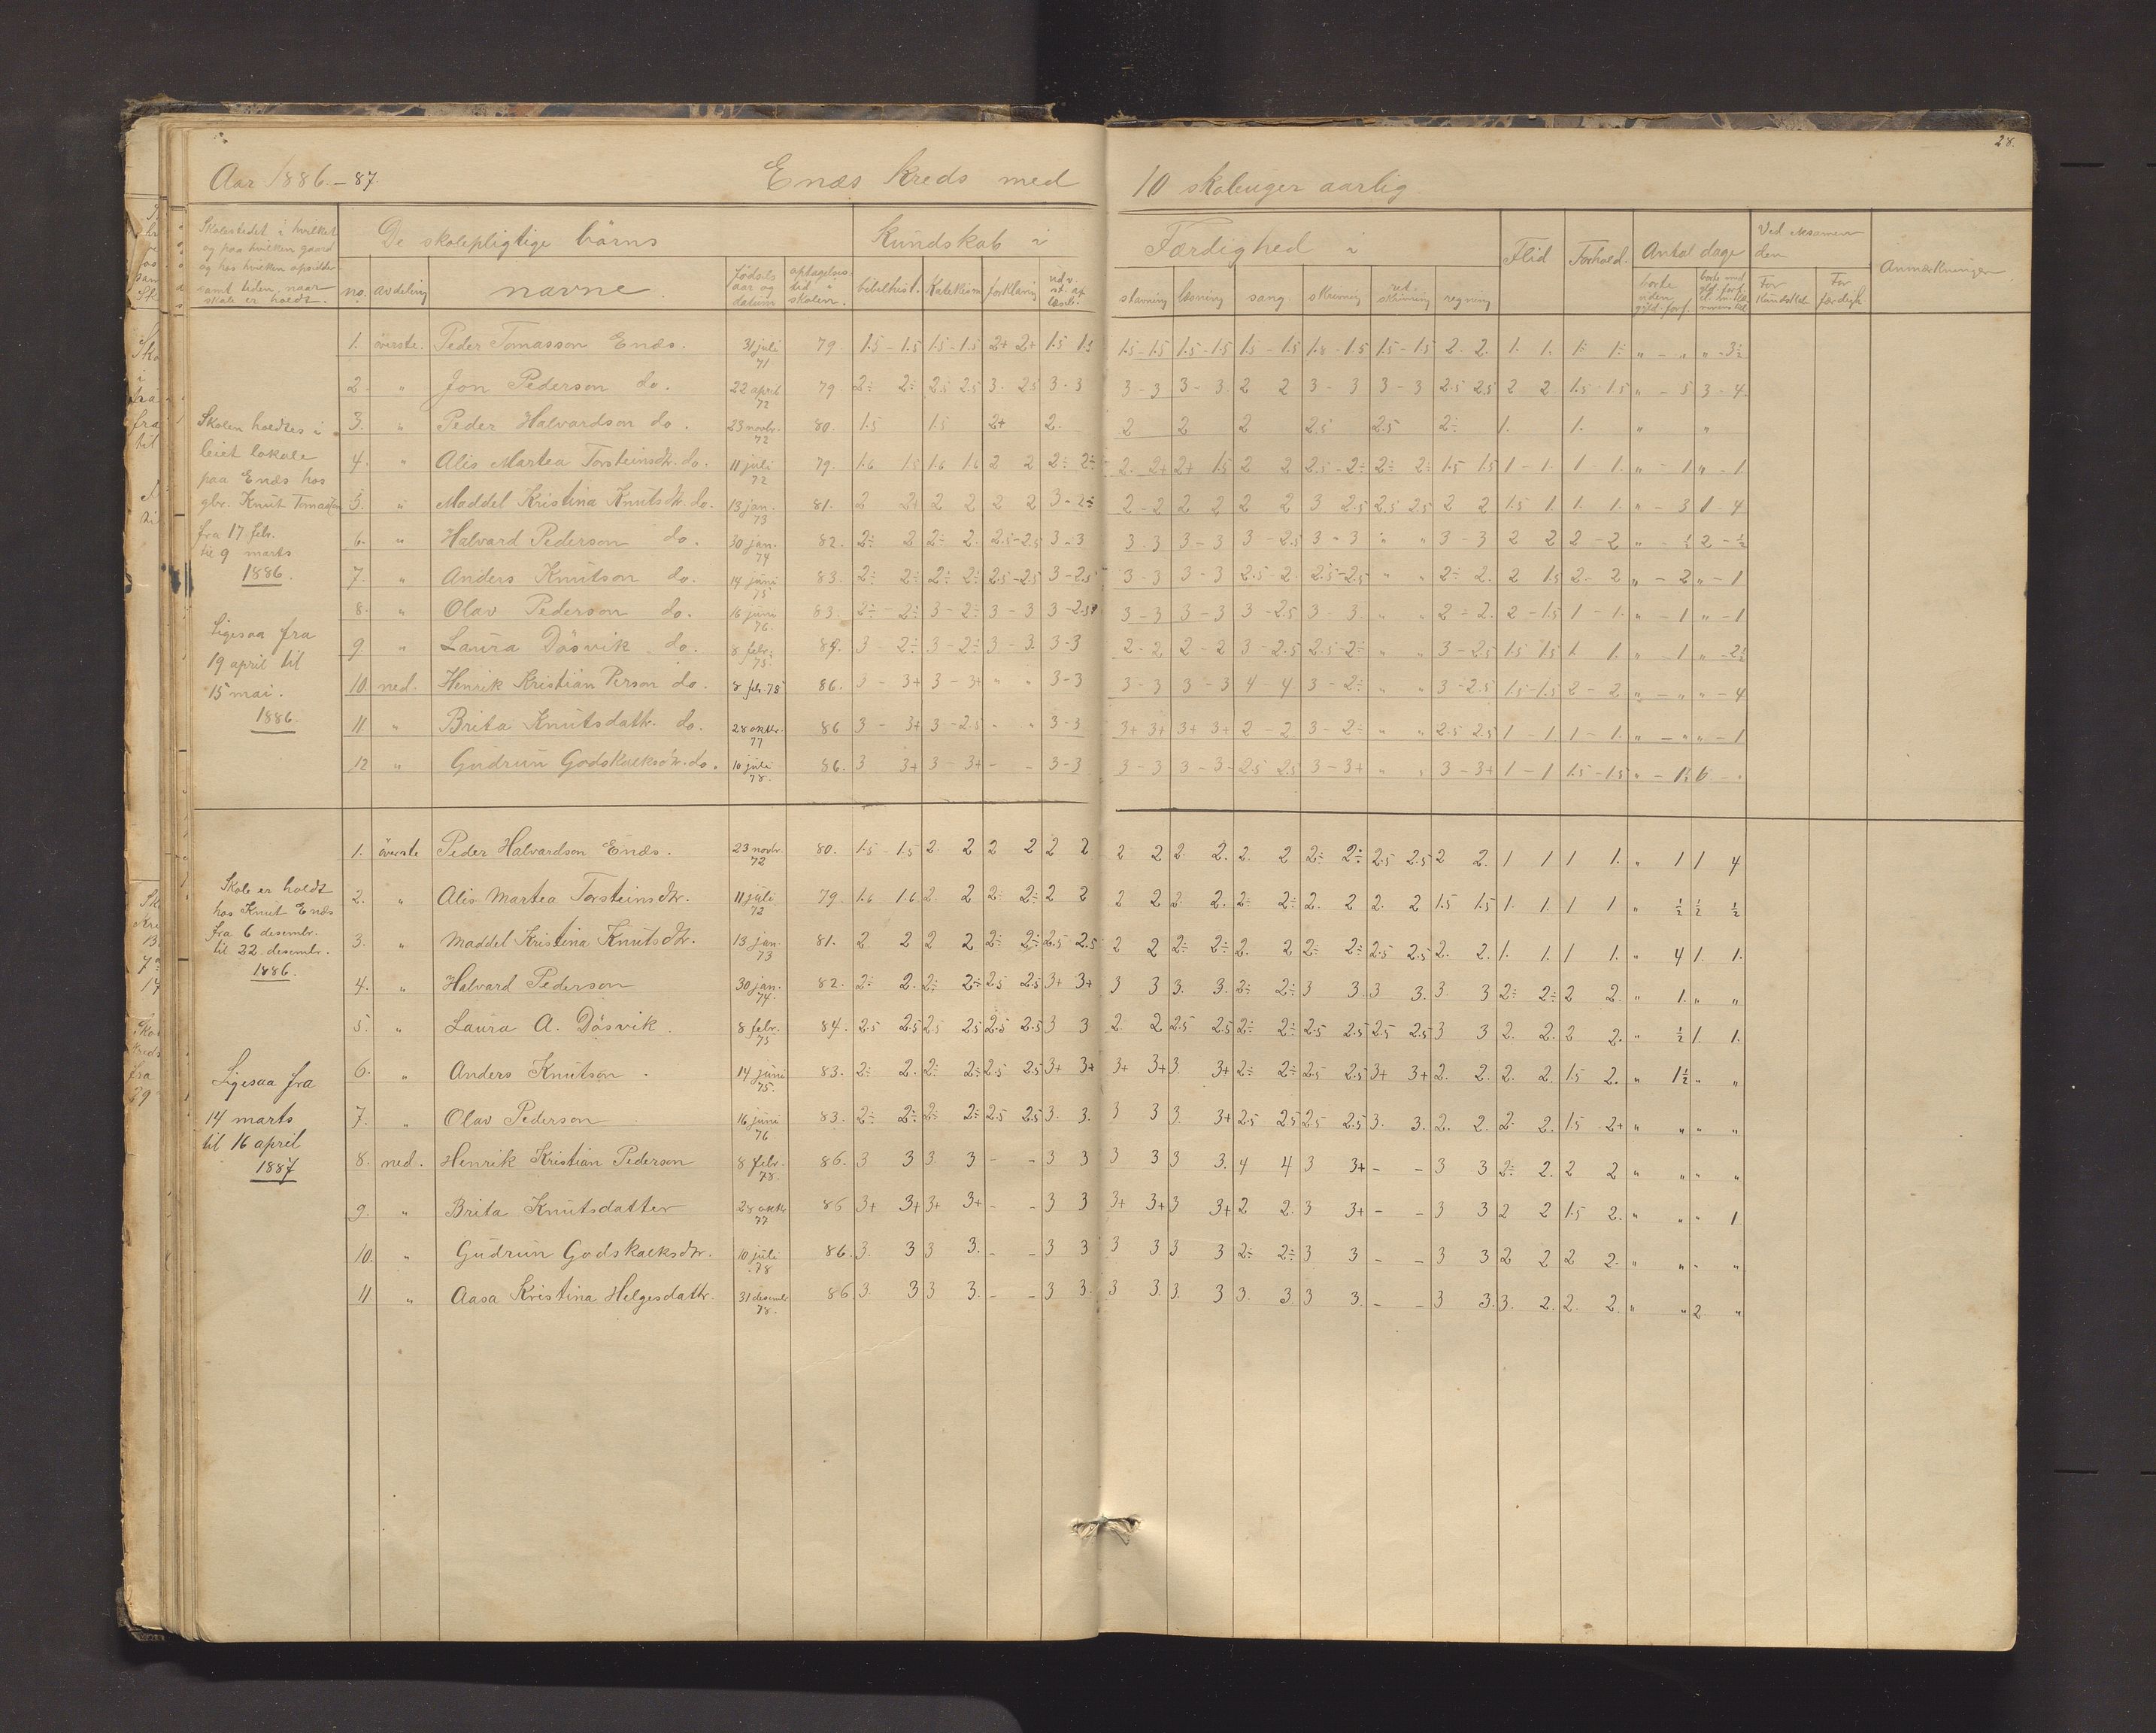 28.
Aar 1886.-87 Enæs Kreds med 10 skoleuger aarlig
Skolestedet i hvilket og paa hvilken gaard og hos hvilken opsidder samt tiden, naar skole er holdt.
De skolepligtige börns
no. avdeling navne
födsels aar og datum
optagelses tid i skolen.
Kundskab i
bibelhist. Katekism forklaring
Færdighed i
stavning læsning sang skrivning retskrivning regning
Flid Forhold.
Antal dage
borte uden gyld. forf.
Ved eksamen den
For kundskab For færdigh.
Anmærkninger
1. överste. Peder Tomasson Enæs. 31 juli 71 79 1.5 - 1.5 1.5 - 1.5 2+ 2+ 1.5 1.5 1.5 - 1.5 1.5 - 1.5 1.5 - 1.5 1.8 - 1.5 1.5 - 1.5 2. 2. 1. 1. 1÷ 1÷ " - " " - 3½
2. " Jon Pederson do. 22 april 72 79. 2÷ 2÷ 2.5 2.5 3. 2.5 3 - 3 3 - 3 3 - 3. 2 2 3 - 3 3 - 3 2.5 2.5 2 2. 1.5 - 1.5 " - 5 3 - 4.
3. " Peder Halvardson do. 23 novbr. 72 80. 1.5 1.5 2+ 2. 2 2 2 2.5 2.5 2÷ 1. 1. " "
4. " Alis Martea Torsteinsdtr. do. 11 juli 72 79. 1.6 1.5 1.6 1.6 2 2 2÷ 2÷ 2. 2+ 2+ 1.5 2 2 2.5 - 2÷ 2÷ 2÷ 1.5 1.5 1 - 1. 1 - 1. " - 1 " - 1.
5. " Maddel Kristina Knutsdtr. do. 13 jan. 73 81. 2 2+ 2 2 2 2 3 - 2÷ 2 - 2 2 2 2 2 3 2.5 2.5 2.5 2 2 1.5 1. 1. 1. " - 3 1 - 4
6. " Halvard Pederson do. 30 jan. 74 82. 2÷ 2 2÷ 2. 2.5 - 2.5 3 - 3 3. 3 3 - 3 3 - 2.5 3 - 3 " " 3 - 3 2 2 2 - 2 " - ½ 2 - ½
7. " Anders Knutson do. 14 juni 75 83. 2÷ 2÷ 2÷ 2÷ 2.5 - 2.5 3 - 2.5 3 - 3 3 - 3 2.5 - 2. 2.5 - 2.5 " " 2÷ 2. 2 1.5 2 - 2 " - 2 " - 1
8. " Olav Pederson do. 16 juni 76. 83. 2÷ - 2÷ 3 - 2÷ 3 - 3 3 - 2.5 3 - 3 3 - 3 3 - 2.5 3 - 3. " " 2 - 2. 2 - 1.5 1 - 1. " - 1 " - 1
9. " Laura Dösvik do. 8 febr. 75. 84. 3 - 2÷ 3 - 2÷ 3 - 3. 3 - 3 2 - 2 2 - 2 3 - 2.5 2.5 - 2÷ " " 3 - 2.5 1.5 1.5 1 1. " - 1 " - 2½
10. ned. Henrik Kristian Person do. 8 feb. 78 86. 3 - 3+ 3 - 3+ " " 3 - 3 3 - 3 3 - 3 4 - 4 3 - 2÷ " " 3 - 2.5 1.5 - 1.5 2 - 2 " - " " - 4
11. " Brita Knutsdattr. do. 28 oktbr. 77 86 3 - 3+ 3 - 2.5 - - 3 - 3 3+ 3+ 3+ 3+ 2 - 2 3 - 2÷ " " 2.5 2.5 1 - 1 1 - 1. " - " " - 1
12 " Gudrun Godskalksdtr. do. 10 juli 78. 86. 3 3+ 3 - 3+ - - 3 - 3 3 - 3 3 - 3 - 2.5 2.5 3 - 3+ " " 3 - 3+ 1 - 1 1.5 - 1.5 " - 1½ 6 - "
Skolen holdtes i
leiet lokale
paa Enæs hos
gbr. Knut Tomasson
fra 17. febr.
til 9 marts
1886.
Ligesaa fra
19 april til
15 mai.
1886.
1. överste Peder Halvardson Enæs. 23 novbr. 72 80. 1.5 - 1.5 2. 2 2 2 2 2 2 2 2. 2. 2. 2 2÷ 2÷ 2.5 2.5 2 2. 1 1 1 1. " 1 1 4
2. " Alis Martea Torsteinsdtr. 11 juli 72 79. 1.6 1.6 2. 2 2÷ 2÷ 2 2 2 2 2. 2. 2÷ 2÷ 2. 2 2. 2 1.5 1.5 1. 1. 1 1 " ½ ½ ½
3. " Maddel Kristina Knutsdtr. 13 jan. 73 81. 2. 2 2 2 2÷ 2÷ 2.5 2.5 2 2 2÷ 2÷ 2. 2 2÷ 2÷ 2.5 2.5 2. 2. 1. 1. 1 1. " 4 1 1.
4. " Halvard Pederson 30 jan. 74. 82. 2÷ 2. 2÷ 2÷ 2.5 2.5 3+ 3+ 3 3 3. 3. 2÷ 2÷ 3 3. 3 3. 3. 3 2÷ 2÷ 2 2. " 1. " "
5. " Laura A. Dösvik. 8 febr. 75 84. 2.5 2.5 2.5 2.5 2.5 2.5 3 3 2 2 2.5 2.5 2÷ 2÷ 2.5 2.5 2.5 2.5 3 3 2. 2. 2 2. " ½ 1. 1.
6. " Anders Knutson. 14 juni 75. 83. 2÷ 2. 2÷ 2÷ 2.5 2.5 3+ 3+ 3+ 3+ 3. 3+ 2÷ 2÷ 2.5 2.5 3+ 3+ 2. 2. 2. 2. 1.5 2. " 1½ " "
7. " Olav Pederson 16 juni 76 83. 2÷ 2÷ 2÷ 2÷ 2.5 2.5 3. 3. 3 3 3. 3+ 2.5 2.5 2.5 2.5 3. 3. 2. 2. 2. 2. 1.5 2+ " " " "
8. ned. Henrik Kristian Pederson 8 febr. 78. 86. 3 3 3 3 - - 3 3 3 3 3 3. 4 4 3 3+ - - 3 3 2÷ 2. 2 2 " " " "
9. " Brita Knutsdatter 28 oktbr 77 86 3+ 3+ 3+ 3+ - - 3 3 3+ 3+ 3 3+ 2 2. 3 3+ - - 3 3 2 2 1.5 2. " " " 1
10. " Gudrun Godskalksdtr. 10 juli 78 86. 3. 3 3 3. - - 3 3 3 3 3 3 2÷ 2÷ 3 3 - - 3 3 2 2 2 2. " " " "
11 " Aasa Kristina Helgesdattr. 31 desembr 78. 86 3. 3 3 3. - - 3 3. 3 3. 3. 3 3. 3. 3 3. - - 3 3. 3. 2. 2. 2. " " 2 "
Skole er holdt
hos Knut Enæs
fra 6 desembr.
til 22 desembr.
1886.
Ligesaa fra
14 marts
til 16 april
1887